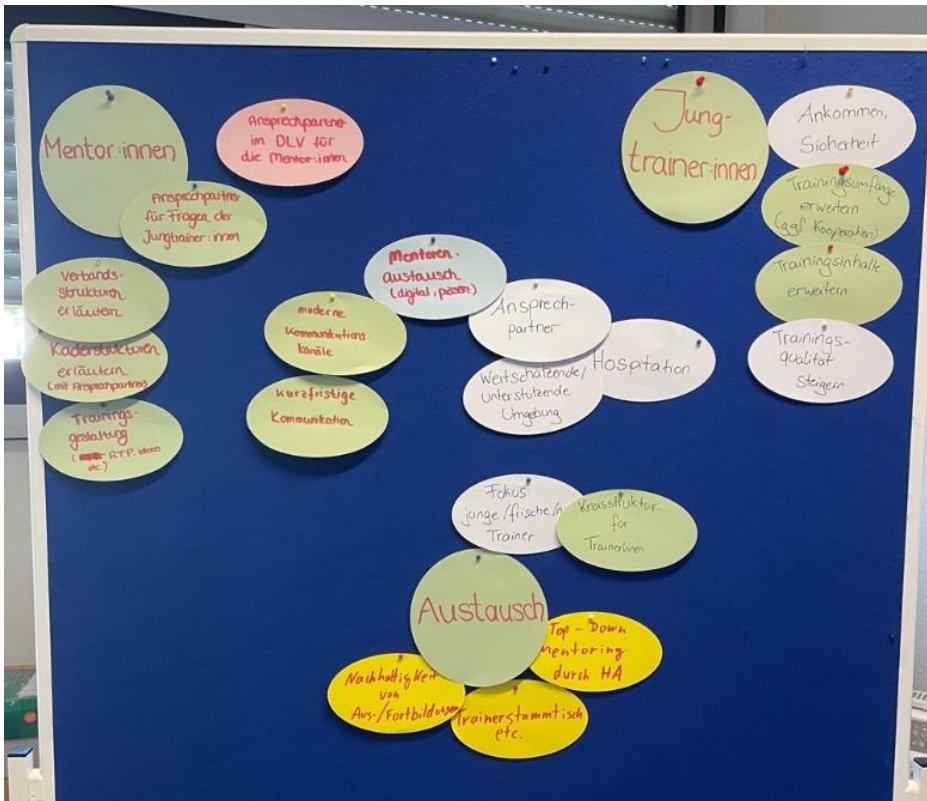 Mentor:innen
Ansprechpartner
im DLV für
die Mentor:innen
Ansprechpartner
für Fragen der
Jungtrainer:innen
Verbands-
strukturen
erläutern
Kaderstrukturen
erläutern
(mit Ansprechpartner)
Trainings-
gestaltung
RTP, Ideen
etc.)
Mentoren-
austausch
(digital, präsenz)
moderne
Kommunikations
kanäle
Kurzfristige
Kommunikation
Ansprech-
partner
Wertschätzende/
unterstützende
Umgebung
Hospitation
Jung-
trainer:innen
Ankommen,
Sicherheit
Trainingsumfänge
erweitern
(ggf. Kooperation)
Trainingsinhalte
erweitern
Trainings-
qualität
steigern
Fokus
junge/frische/n
Trainer
Kreisstruktur
für
TrainerInnen
Austausch
Top-Down
mentoring
durch HA
Nachhaltigkeit
von
Aus-/Fortbildungen
Trainerstammtisch
etc.